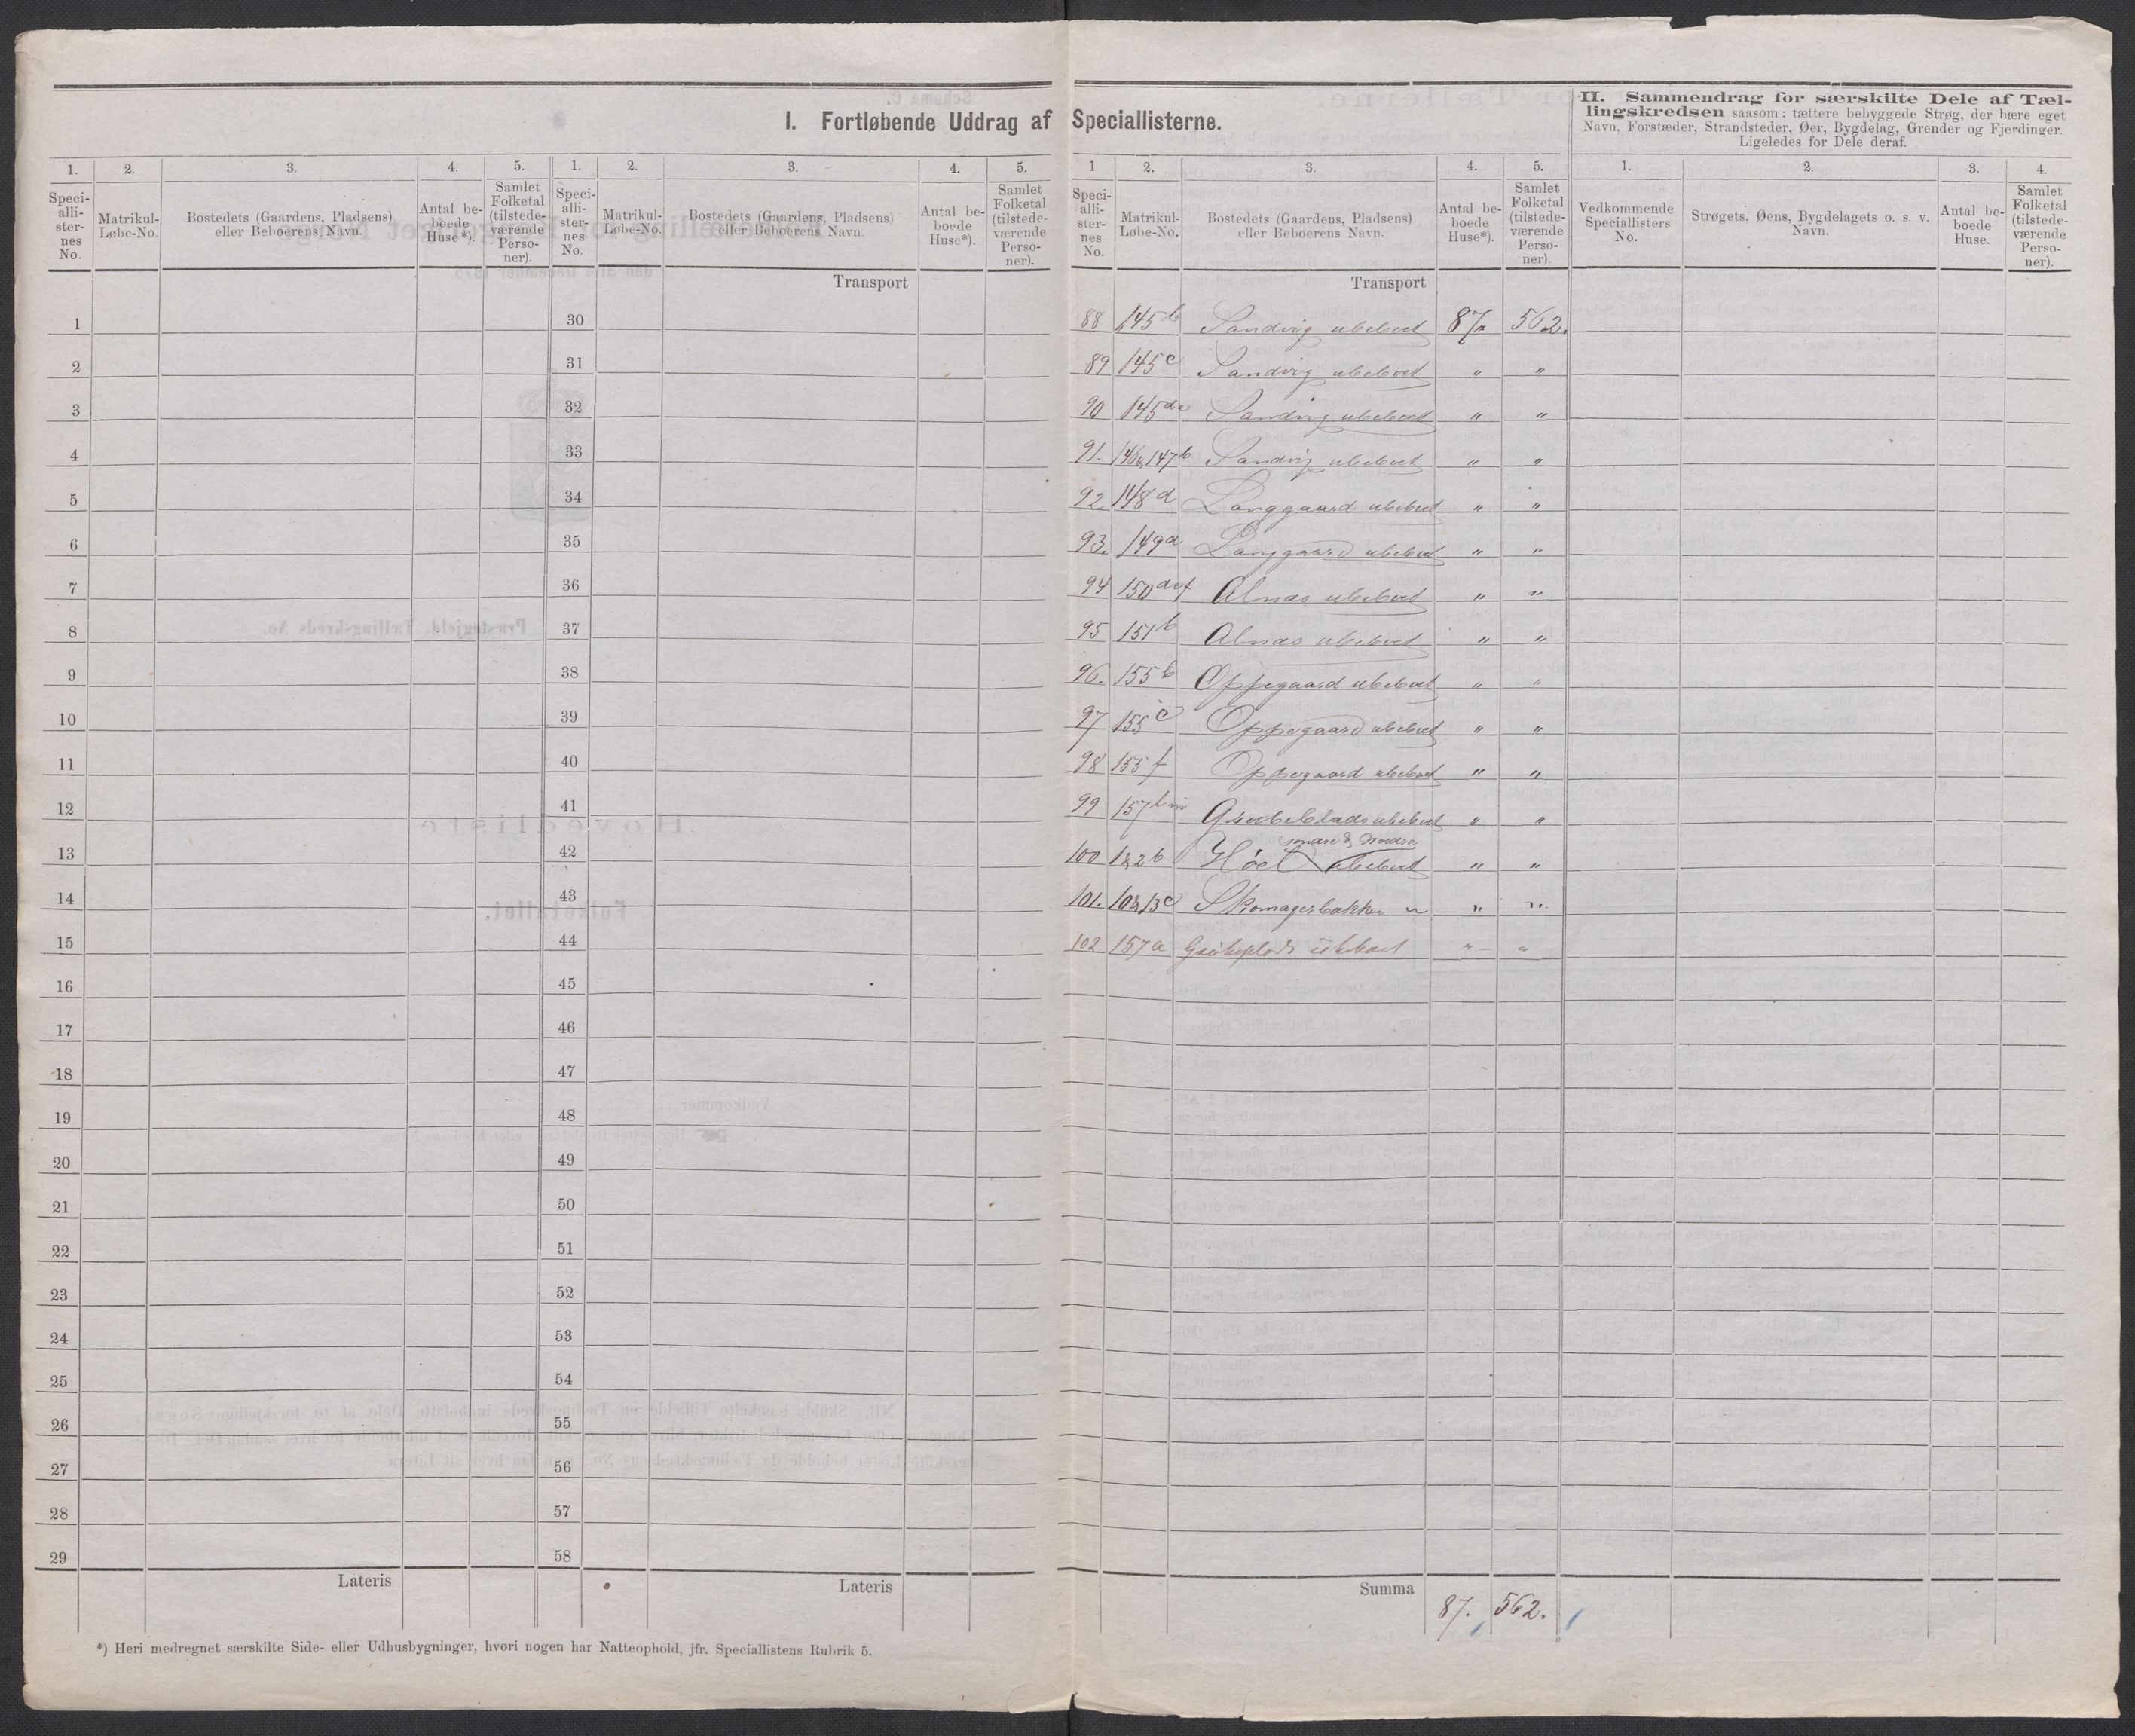 I. Fortløbende Uddrag af Speciallisterne.
II. Sammendrag for særskilte Dele af Tæl-
lingskredsen saasom: tættere bebyggede Strøg, der bære eget
Navn, Forstæder, Strandsteder, Øer, Bygdelag, Grender og Fjerdinger.
Ligeledes for Dele deraf.
1. 2. 3. 4. 5. 1. 2. 3. 4. 5. 1 2. 3. 4. 5. 1. 2. 3. 4.
Speci-alli-ster-nes No. Matrikul-Løbe-No. Bostedets (Gaardens, Pladsens) eller Beboerens Navn. Antal be-boede Huse*). Samlet Folketal (tilstede-værende Perso-ner).
Speci-alli-ster-nes No. Matrikul-Løbe-No. Bostedets (Gaardens, Pladsens) eller Beboerens Navn. Antal be-boede Huse*). Samlet Folketal (tilstede-værende Perso-ner).
Speci-alli-ster-nes No. Matrikul-Løbe-No. Bostedets (Gaardens, Pladsens) eller Beboerens Navn. Antal be-boede Huse*). Samlet Folketal (tilstede-værende Perso-ner).
Vedkommende Speciallisters No. Strøgets, Øens, Bygdelagets o. s. v. Navn. Antal be-boede Huse. Samlet Folketal (tilstede-værende Perso-ner).
Transport Transport
1 30 88 145b Sandvig ubeboet 87. 562.
2 31 89 145c Sandvig ubeboet " "
3 32 90 145da Sandvig ubeboet " "
4 33 91. 146&147b Sandvig ubeboet " "
5 34 92 148d Langgaard ubeboet " "
6 35 93. 149d Langgaard ubeboet " "
7 36 94 150def Alnæs ubeboet " "
8 37 95 151b Alnæs ubeboet " "
9 38 96. 155b Oppegaard ubeboet " "
10 39 97 155c Oppegaard ubeboet " "
11 40 98 155f Oppegaard ubeboet " "
12 41 99 157b ubeboet " "
søndre & Nordre
13 42 100 1&2b Høel ubeboet " "
14 43 101. 10&13c Skomagerbakken " " "
15 44 102 157a ubeboet " "
16 45
17 46
18 47
19 48
20 49
21 50
22 51
23 52
24 53
25 54
26 55
27 56
28 57
29 58
Lateris Lateris Summa 87. 562.
*) Heri medregnet særskilte Side- eller Udhusbygninger, hvori nogen har Natteophold, jfr. Speciallistens Rubrik 5.